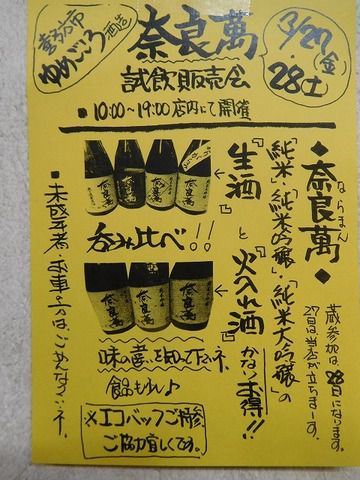 喜多方市
ゆめごころ酒造
奈良萬
3/27(金)
・28土
試飲販売会
■10:00〜19:00店内にて開催
◆奈良萬◆
ならまん
「純米」・「純米吟醸」・「純米大吟醸」の
『生酒』と『火入れ酒』
かなりお得!!
呑み比べ!!
蔵参加は、28日になります。
27日は当店が立ちまーす。
味の違いを知って下さいネ。
■未成年者・お車の方は、ごめんなさいネ。
※エコバッグご持参
ご協力宜しくです。